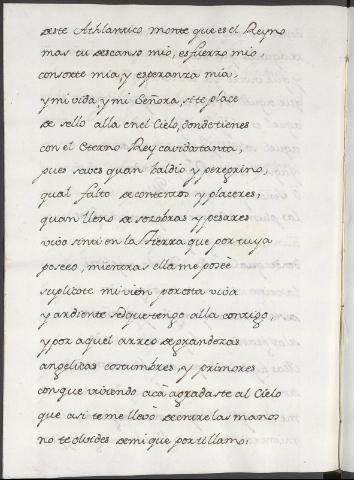 deste Athlantico monte que es el Reyno
mas tu descanso mio, esfuerzo mio,
consorte mia, y esperanza mia,
y mi vida, y mi Señora, si te place
de sello alla en el Cielo, donde tienes
con el Eterno Rey cavida tanta,
pues saves quan baldio y peregrino,
qual falto de contentos y placeres,
quan lleno de sozobras y pesares
vivo sin ti en la Tierra que por tuya
poseo, mientras ella me posèe
suplicote mi vien por esta vida
y ardiente sed que tengo alla contigo,
y por aquel arreo de grandezas
angelicas costumbres, y primores
con que viviendo acà agradaste al Cielo
que asi te me llevò de entre las manos
no te olvides de mi que por ti llamo: